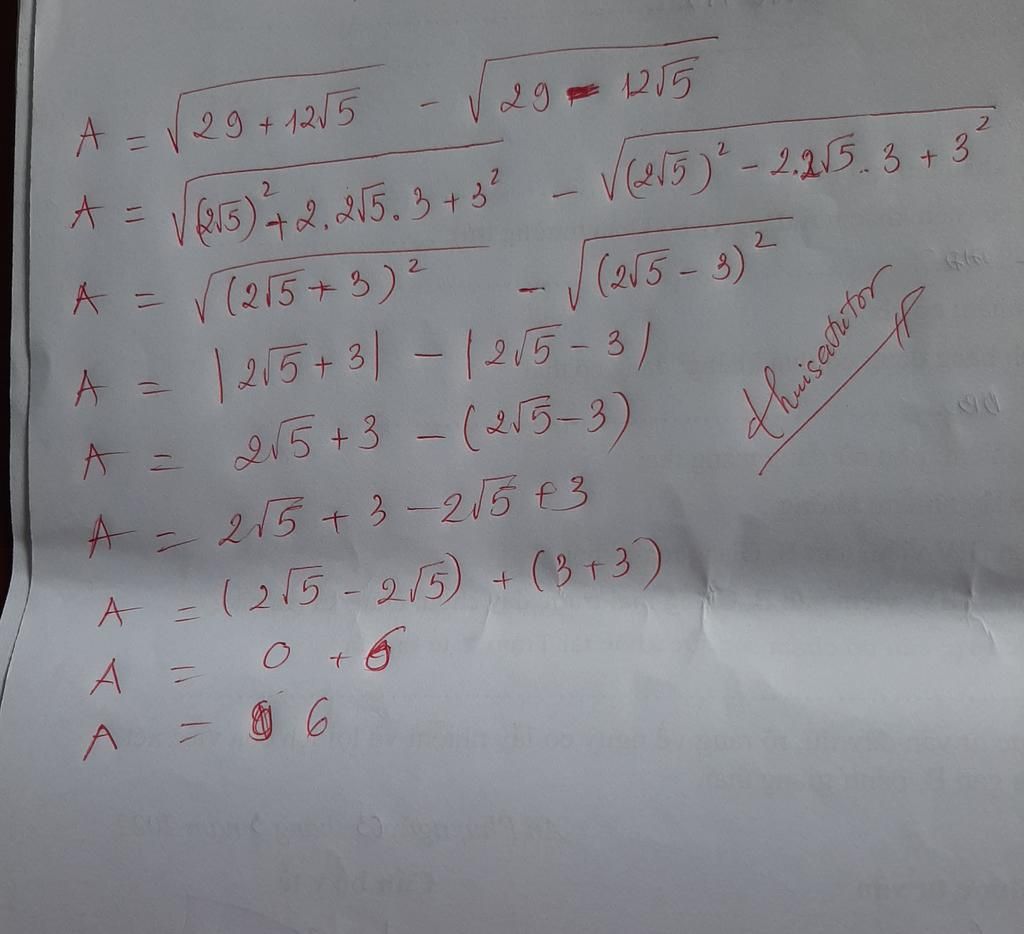 A = √(29 + 12√5) - √(29 - 12√5)
A = √((2√5)² + 2.2√5.3 + 3²) - √((2√5)² - 2.2√5.3 + 3²)
A = √((2√5 + 3)²) - √((2√5 - 3)²)
A = |2√5 + 3| - |2√5 - 3|
A = 2√5 + 3 - (2√5 - 3)
A = 2√5 + 3 - 2√5 + 3
A = (2√5 - 2√5) + (3 + 3)
A = 0 + 6
A = 6